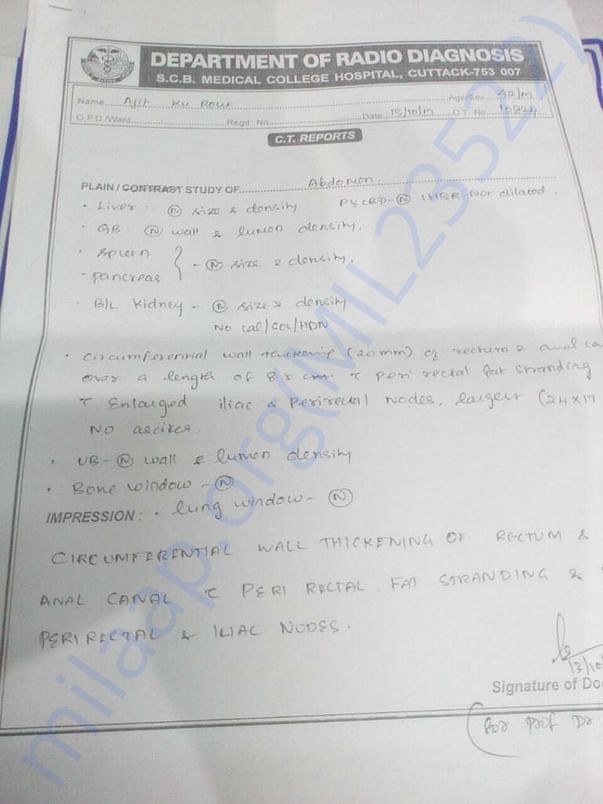 DEPARTMENT OF RADIO DIAGNOSIS
S.C.B. MEDICAL COLLEGE HOSPITAL, CUTTACK-753 007
Name Ajit Ku Rout Age/Sex 42/m
O.P.D./Ward Regd. No. Date 13/10/17 C.T. No.
C.T. REPORTS
PLAIN / CONTRAST STUDY OF Abdomen.
• Liver : (N) size & density PV CBD- (N) IHBR-not dilated.
• GB (N) wall & lumen density.
• Spleen
• Pancreas } - (N) size & density.
• B/L Kidney - (N) size & density
NO cal/SOL/HDN
• Circumferential wall thickening (20mm) of rectum & anal
over a length of cm. c Peri rectal fat stranding
c Enlarged iliac & Perirectal Nodes, largest (24 x 17
NO ascites.
• UB- (N) wall & lumen density
• Bone window - (N)
IMPRESSION : • lung window - (N)
CIRCUMFERENTIAL WALL THICKENING OF RECTUM &
ANAL CANAL c PERI RECTAL FAT STRANDING &
PERIRECTAL & ILIAC NODES.
13/10
Signature of Do
For Prof Dr
milaap.org(MIL23522)